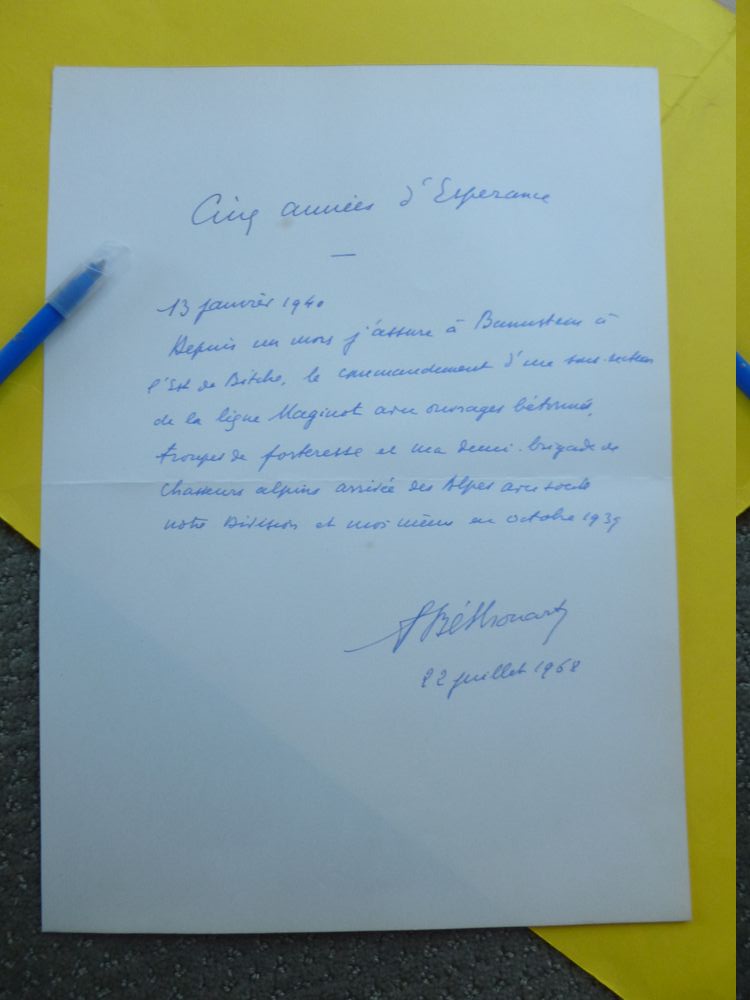 Cinq années d'Espérance
13 janvier 1940
Depuis un mois j'assure à Bannstein à
l'Est de Bitche, le commandement d'un sous-secteur
de la ligne Maginot avec ouvrages bétonnés,
troupes de forteresse et ma demi-brigade de
Chasseurs alpins arrivée des Alpes avec toute
notre Division et moi-même en octobre 1939
Béthouart
22 juillet 1968